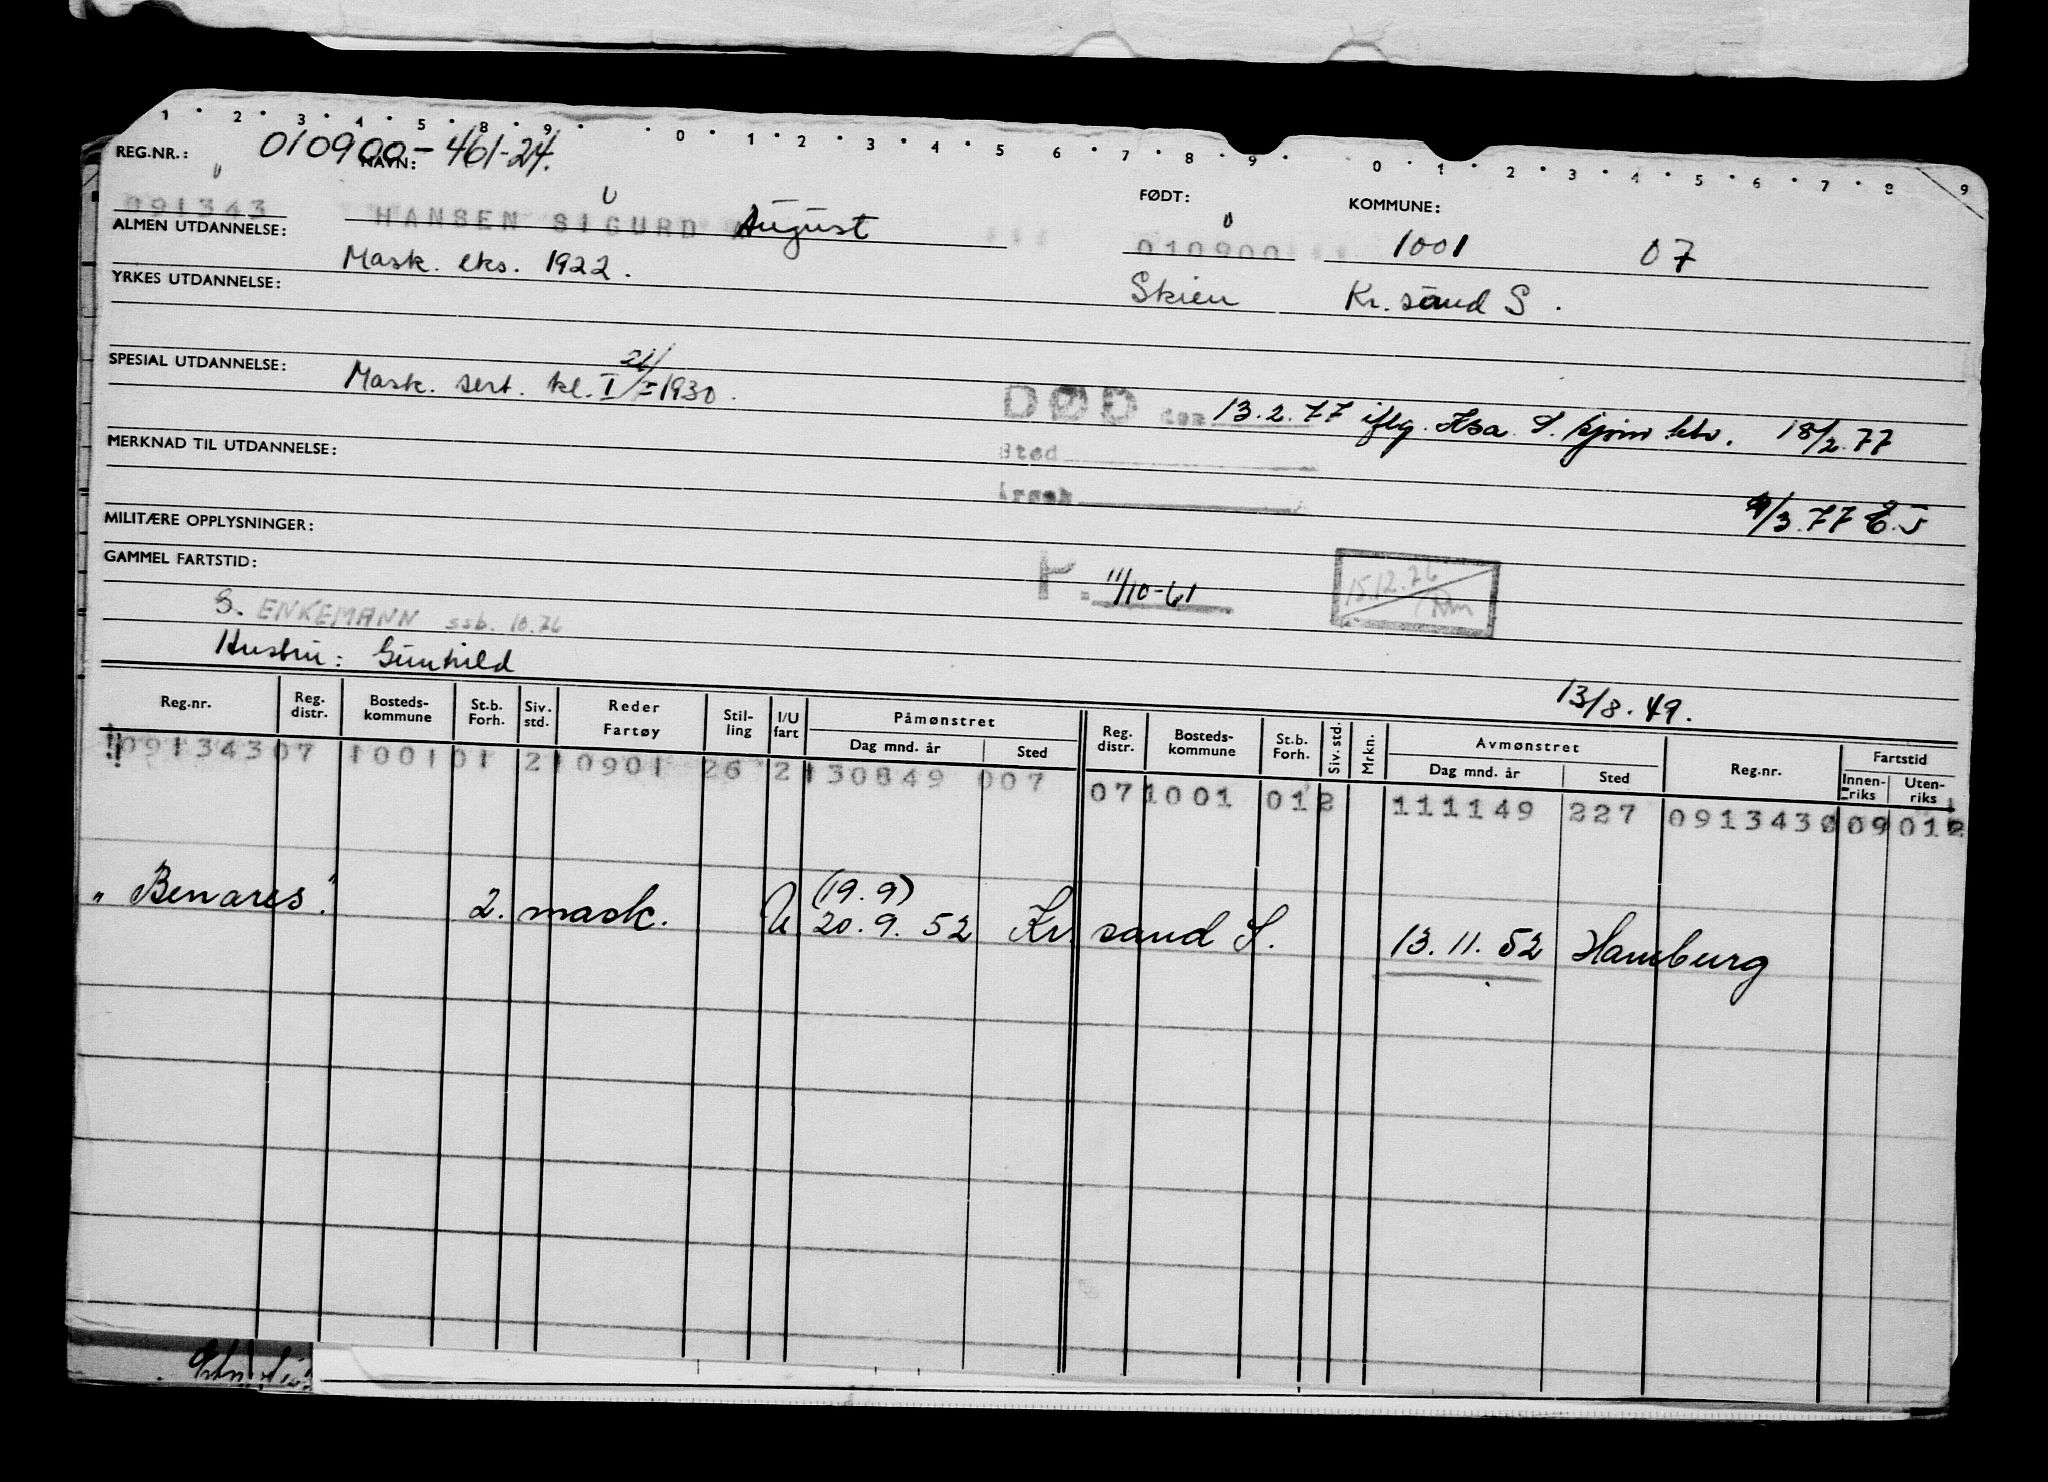 1 2 3 4 5 8 9 0 1 2 3 4 5 6 7 8 9 0 1 2 3 4 5 6 7 8 9
REG.NR.: 010900-461-24. NAVN: FØDT: KOMMUNE:
091343 HANSEN SIGURD August 010900 1001 07
ALMEN UTDANNELSE: Mask. eks. 1922. Skien Kr. sand S.
YRKES UTDANNELSE:
SPESIAL UTDANNELSE: Mask. sert. kl. I 1930.
DØD den 13.2.77 iflg. Hsa. S. kjønn 18/2.77
MERKNAD TIL UTDANNELSE: Sted
Årsak
9/3.77 E.J
MILITÆRE OPPLYSNINGER:
GAMMEL FARTSTID:
P. 11/10-61 15.12.76
S. ENKEMANN ssb. 10.76
Hustru: Gunhild
13/8.49.
Reg.nr. Reg. distr. Bosteds-kommune St.b. Forh. Siv. std. Reder Fartøy Stil-ling I/U fart Påmønstret Dag mnd. år Sted Reg. distr. Bosteds-kommune St.b. Forh. Siv. std. Mrkn. Avmønstret Dag mnd. år Sted Reg.nr. Fartstid Innen-riks Uten-riks
091343 07 1001 01 2 10901 26 2 130849 007 07 1001 01 2 111149 227 091343 09 012
(19.9)
"Benares". 2. mask. U 20.9.52 Kr. sand S. 13.11.52 Hamburg